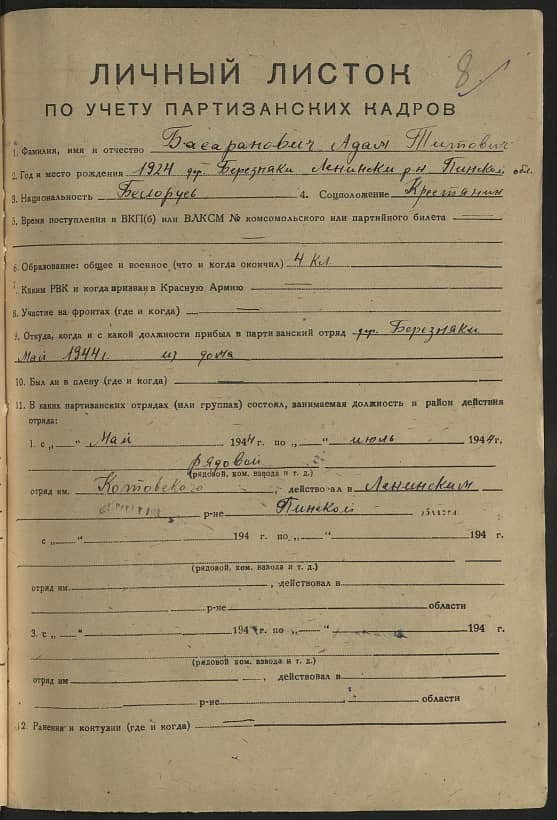 8
ЛИЧНЫЙ ЛИСТОК
ПО УЧЕТУ ПАРТИЗАНСКИХ КАДРОВ
1. Фамилия, имя и отчество Басаранович Адам Титович
2. Год и место рождения 1924 дер. Березняки Ленински р-н Пинской обл.
3. Национальность Белорусь 4. Соцположение Крестянин
5. Время поступления в ВКП(б) или ВЛКСМ № комсомольского или партийного билета
6. Образование: общее и военное (что и когда окончил) 4 кл.
7. Каким РВК и когда призван в Красную Армию
8. Участие на фронтах (где и когда)
9. Откуда, когда и с какой должности прибыл в партизанский отряд дер. Березняки
Май 1944 г. из дома
10. Был ли в плену (где и когда)
11. В каких партизанских отрядах (или группах) состоял, занимаемая должность и район действия
отряда:
1. с „ “ Май 1944 г. по „ “ июль 1944 г.
рядовой
(рядовой, ком. взвода и т. д.)
отряд им. Котовского, действовал в Ленинским
р-не Пинской области
с „ “ 194 г. по „ “ 194 г.
(рядовой, ком. взвода и т. д.)
отряд им. , действовал в
р-не области
3. с „ “ 194 г. по „ “ 194 г.
(рядовой ком. взвода и т. д.)
отряд им , действовал в
р-не области
12. Ранения и контузии (где и когда)